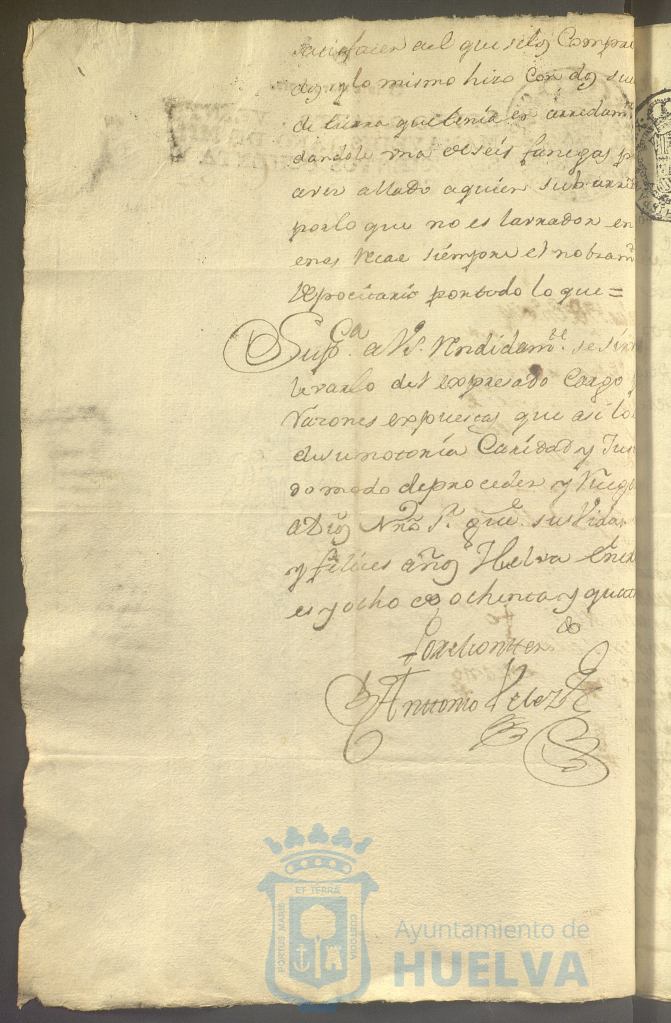 satisfacer del que se los Compra
dos y lo mismo hizo con dos su
de tierra que tenía en arrendam
dandole una de seis fanegas p
aver attado a quien subarr
por lo que no es Lavrador en
enas recae siempre el nobram
Depocitario por todo lo que =
Sup.ca a Vs. Rendidam.te se sir
levarlo del expresado Cargo
razones expuestas que asi lo
de su notoria Caridad y Jus
do modo de proceder y Rueg
a Dios Nro Sr. gue. sus Vidas
y felices años Helva Ener
es y ocho de ochenta y quat
Antonio Velez
ET TERRÆ
PORTUS MARIS
CUSTODIA
Ayuntamiento de
HUELVA